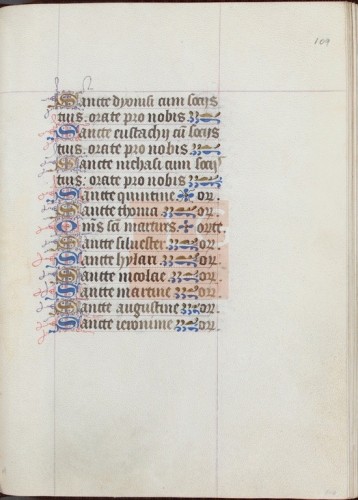 109
Sancte dyonisi cum socijs
tuis. orate pro nobis
Sancte eustachi cū socijs
tuis. orate pro nobis
Sancte nichasi cum socijs
tuis. orate pro nobis
Sancte quintine or.
Sancte thoma or.
Om̄s sc̄i martires orate.
Sancte siluester or.
Sancte hylari or.
Sancte nicolae or.
Sancte martine or.
Sancte augustine or.
Sancte ieronime or.